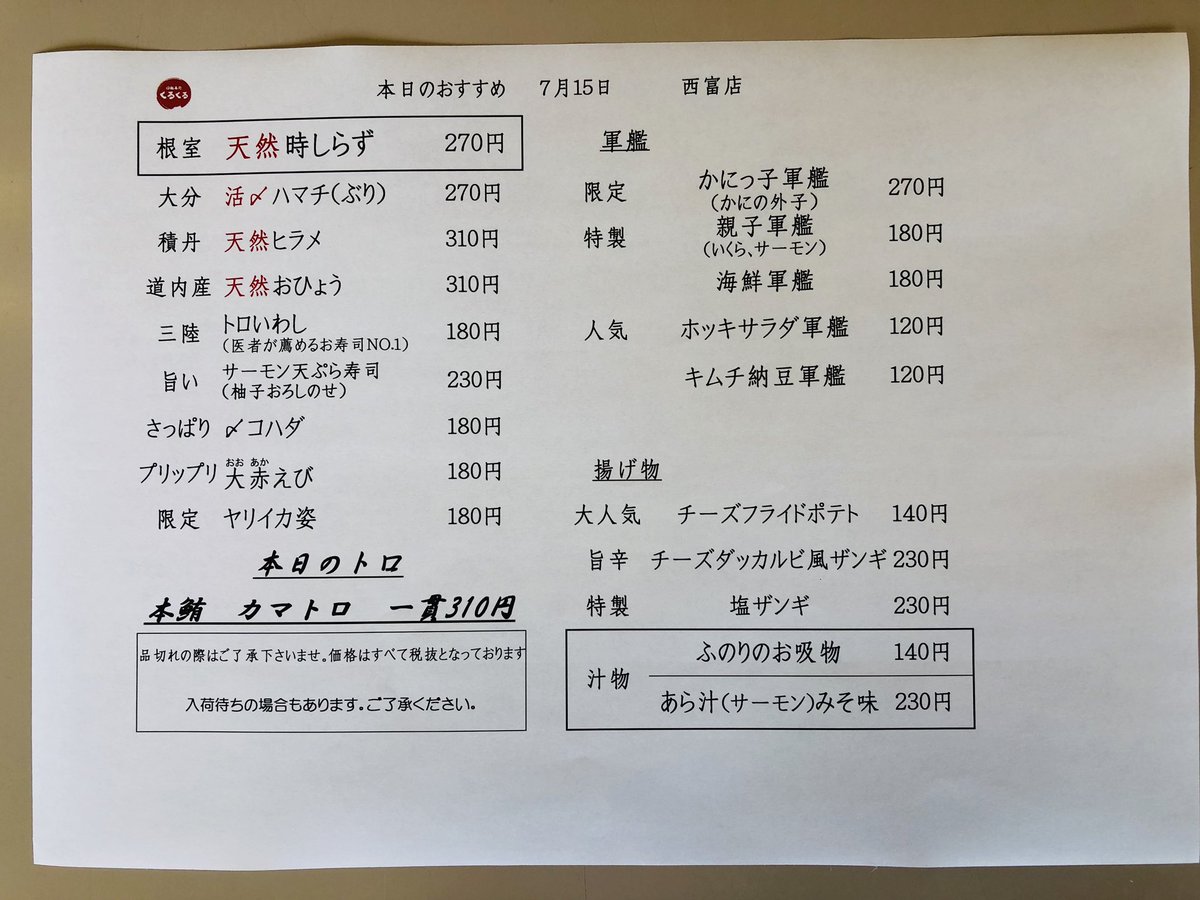 くるくる
本日のおすすめ 7月15日 西富店
根室 天然時しらず 270円
大分 活〆ハマチ(ぶり) 270円
積丹 天然ヒラメ 310円
道内産 天然おひょう 310円
三陸 トロいわし 180円
(医者が薦めるお寿司NO.1)
旨い サーモン天ぷら寿司 230円
(柚子おろしのせ)
さっぱり 〆コハダ 180円
おお あか
プリップリ 大赤えび 180円
限定 ヤリイカ姿 180円
本日のトロ
本鮪 カマトロ 一貫310円
品切れの際はご了承下さいませ。価格はすべて税抜となっております
入荷待ちの場合もあります。ご了承ください。
軍艦
限定 かにっ子軍艦 270円
(かにの外子)
特製 親子軍艦 180円
(いくら、サーモン)
海鮮軍艦 180円
人気 ホッキサラダ軍艦 120円
キムチ納豆軍艦 120円
揚げ物
大人気 チーズフライドポテト 140円
旨辛 チーズダッカルビ風ザンギ 230円
特製 塩ザンギ 230円
汁物 ふのりのお吸物 140円
あら汁(サーモン)みそ味 230円